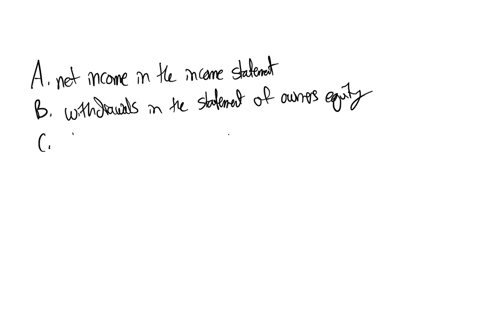 A. net income in the income statement
B. withdrawals in the statement of owners equity
C.